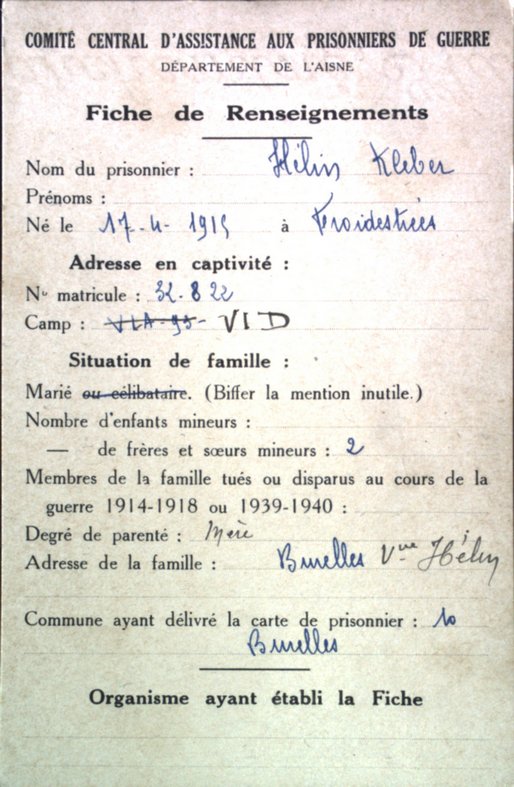 COMITÉ CENTRAL D'ASSISTANCE AUX PRISONNIERS DE GUERRE
DÉPARTEMENT DE L'AISNE
Fiche de Renseignements
Nom du prisonnier : Hélin Kleber
Prénoms :
Né le 17-4-1915 à Froidestrées
Adresse en captivité :
N° matricule : 32.822
Camp : VI D
Situation de famille :
Marié ou célibataire. (Biffer la mention inutile.)
Nombre d'enfants mineurs :
— de frères et sœurs mineurs : 2
Membres de la famille tués ou disparus au cours de la
guerre 1914-1918 ou 1939-1940 :
Degré de parenté : Mère
Adresse de la famille : Burelles Vve Hélin
Commune ayant délivré la carte de prisonnier :
Burelles
Organisme ayant établi la Fiche